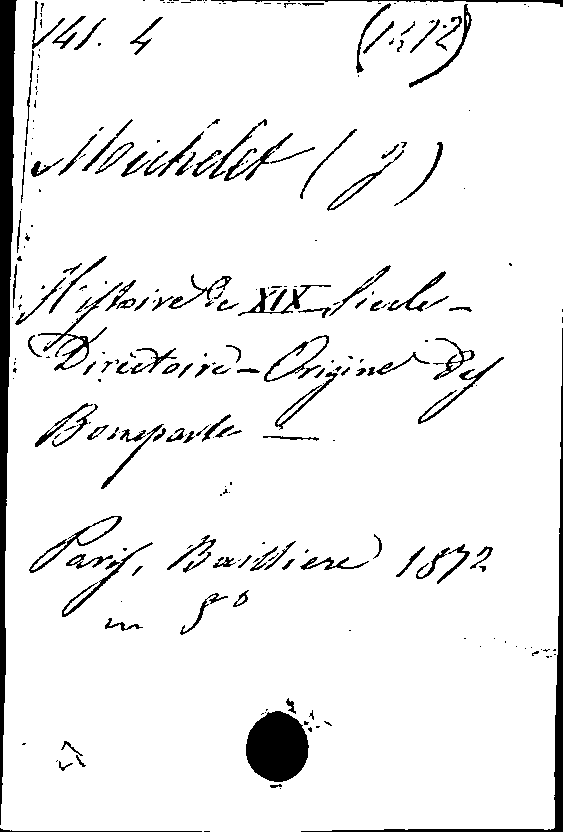 141. 4
Michelet (J)
Histoire de XIX Siecle -
Directoire - Origine des
Bonaparte —
Paris, Baillière 1872
in 8º